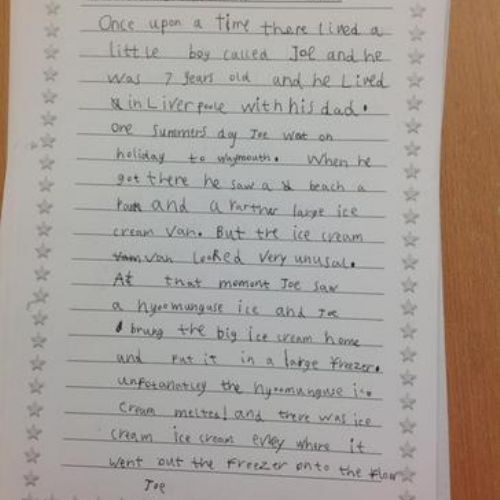 Once upon a time there lived a
little boy called Joe and he
was 7 years old and he Lived
in Liverpoole with his dad.
one summers day Joe wat on
holiday to whymouth. When he
got there he saw a beach a
and a rarther large ice
cream van. But the ice cream
van looked very unusal.
At that moment Joe saw
a hyoomunguse ice and Joe
brung the big ice cream home
and put it in a large freezer.
unfotanatley the hyoomunguse ice
cream melted! and there was ice
cream ice cream evrey where it
went out the freezer onto the flow
Joe